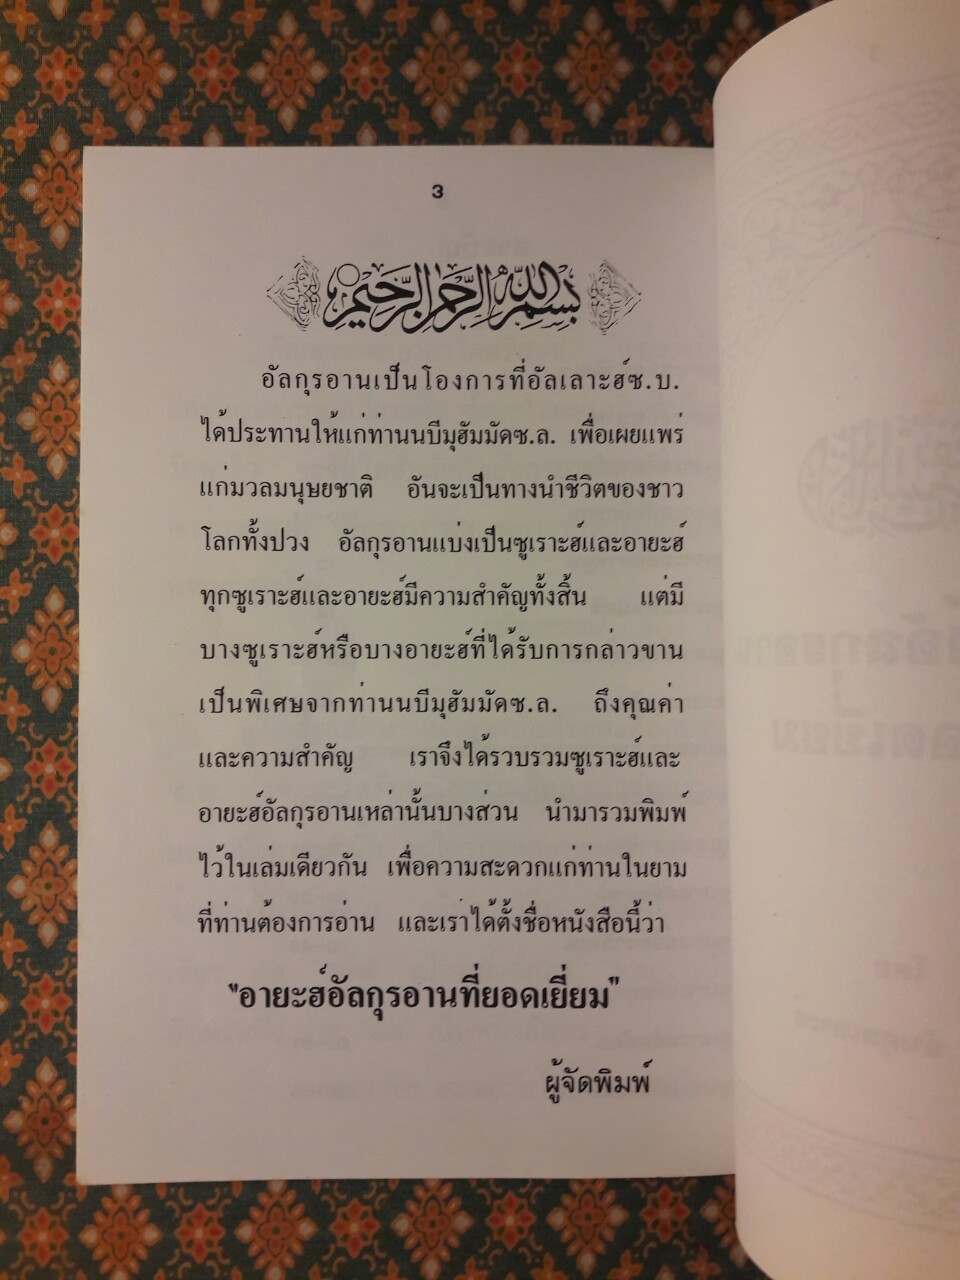 3
بسم الله الرحمن الرحيم
อัลกุรอานเป็นโองการที่อัลเลาะฮ์ซ.บ.
ได้ประทานให้แก่ท่านนบีมุฮัมมัดซ.ล. เพื่อเผยแพร่
แก่มวลมนุษยชาติ อันจะเป็นทางนำชีวิตของชาว
โลกทั้งปวง อัลกุรอานแบ่งเป็นซูเราะฮ์และอายะฮ์
ทุกซูเราะฮ์และอายะฮ์มีความสำคัญทั้งสิ้น แต่มี
บางซูเราะฮ์หรือบางอายะฮ์ที่ได้รับการกล่าวขาน
เป็นพิเศษจากท่านนบีมุฮัมมัดซ.ล. ถึงคุณค่า
และความสำคัญ เราจึงได้รวบรวมซูเราะฮ์และ
อายะฮ์อัลกุรอานเหล่านั้นบางส่วน นำมารวมพิมพ์
ไว้ในเล่มเดียวกัน เพื่อความสะดวกแก่ท่านในยาม
ที่ท่านต้องการอ่าน และเราได้ตั้งชื่อหนังสือนี้ว่า
"อายะฮ์อัลกุรอานที่ยอดเยี่ยม"
ผู้จัดพิมพ์